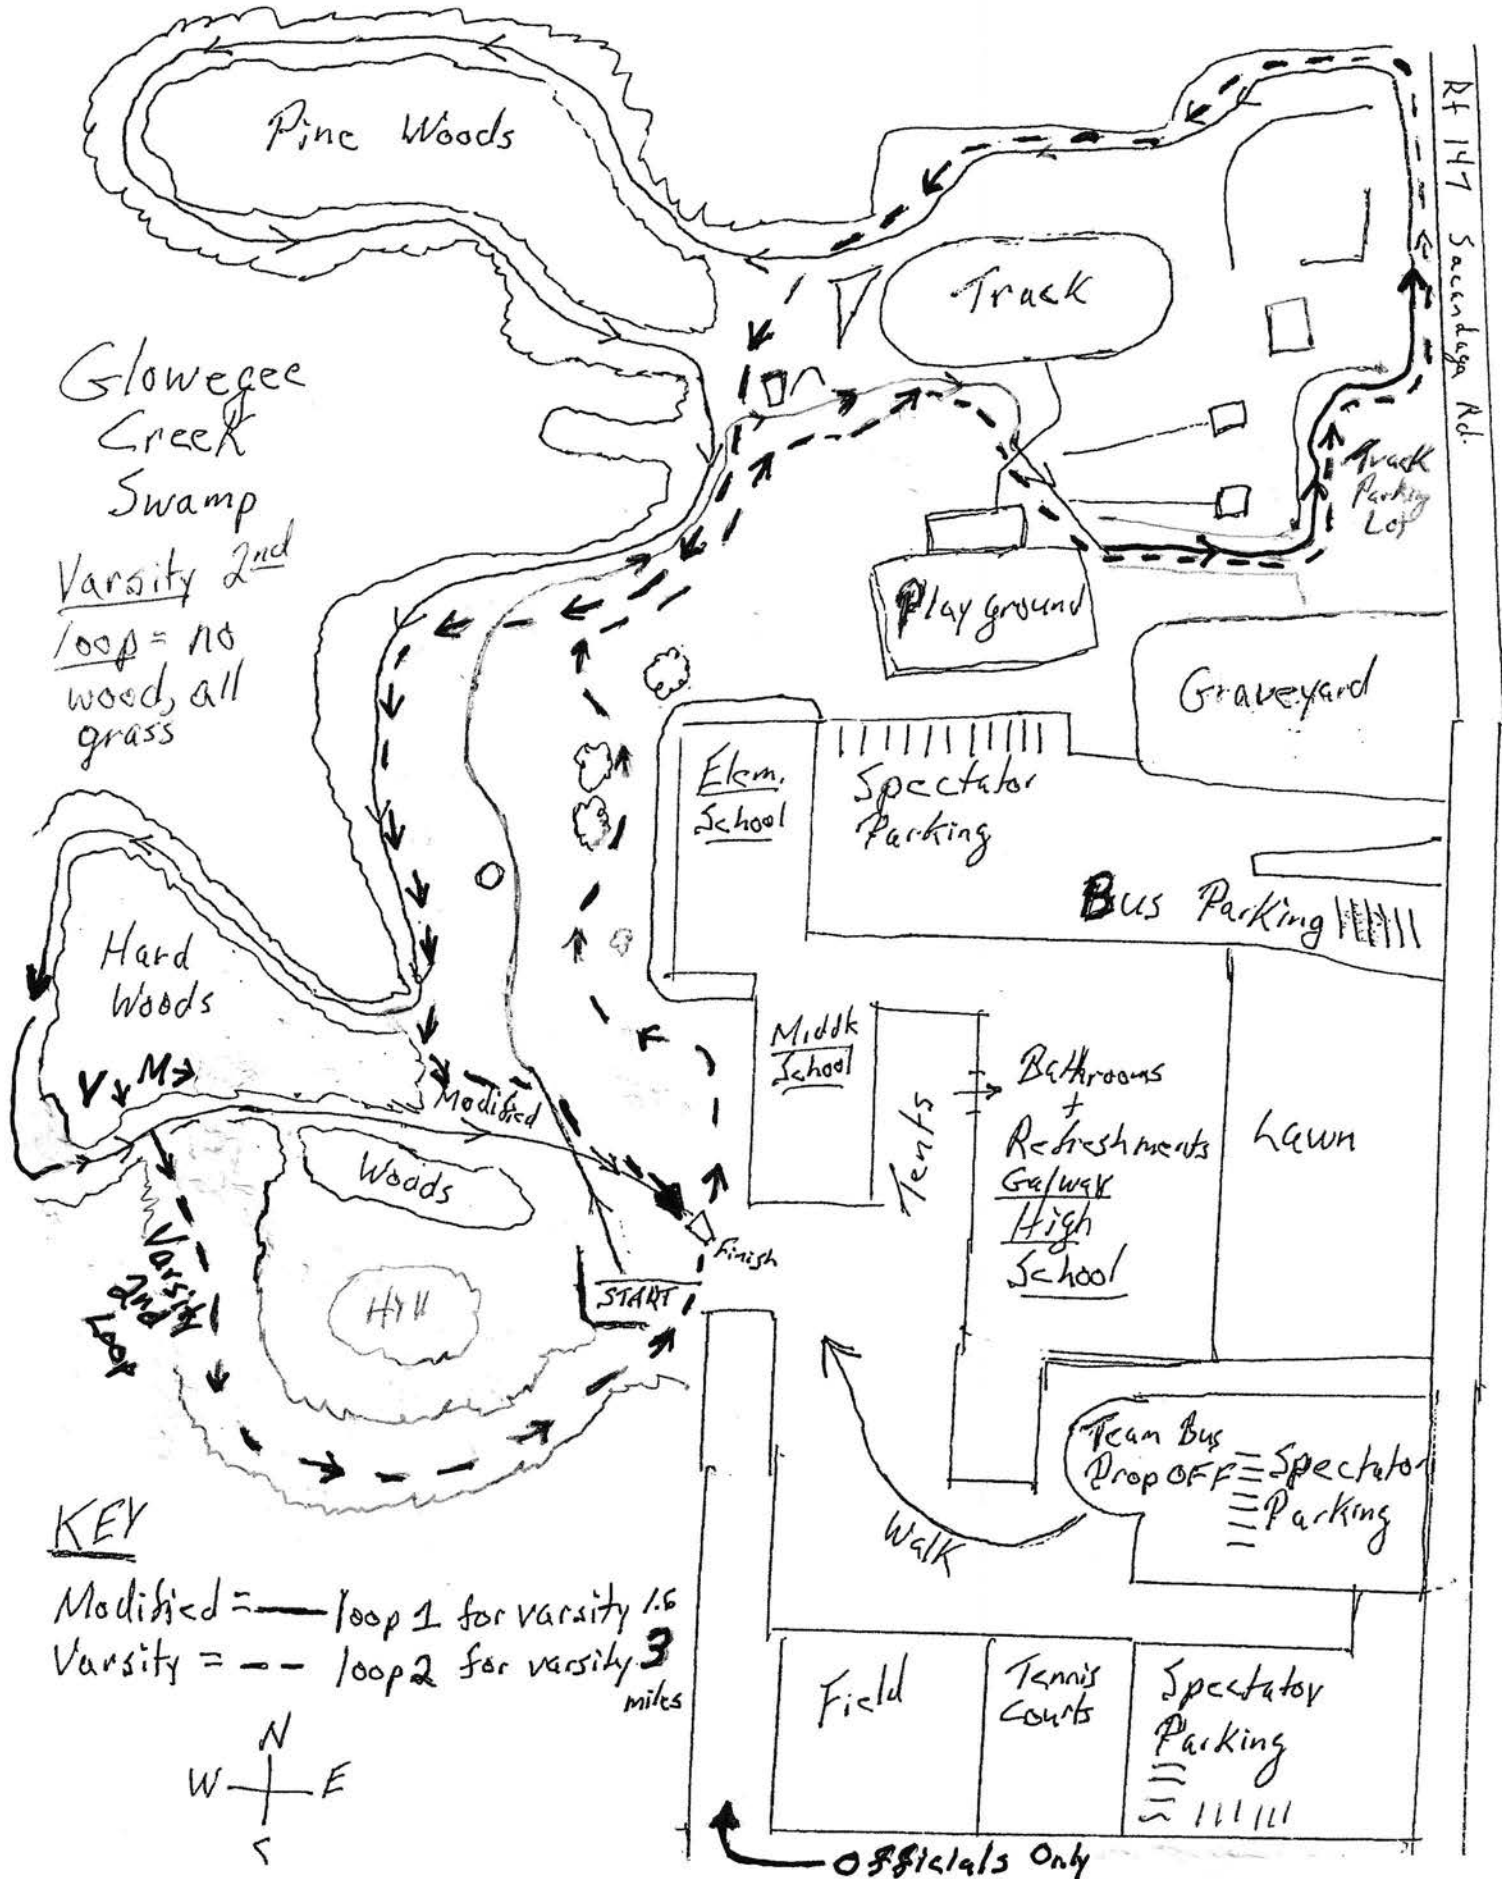 Pine Woods
Rt 147 Sacandaga Rd.
Track
Glowegee
Creek
Swamp
Varsity 2nd
loop = no
wood, all
grass
Track
Parking
Lot
Playground
Graveyard
Elem.
School
Spectator
Parking
Bus Parking
Hard
Woods
V M
Modified
Middle
School
Tents
Bathrooms
+
Refreshments
Galway
High
School
Lawn
Woods
Finish
START
Hill
Varsity
2nd
Loop
Team Bus
Drop OFF
Spectator
Parking
Walk
KEY
Modified = loop 1 for varsity 1.5
Varsity = loop 2 for varsity 3
miles
N
W E
S
Field
Tennis
Courts
Spectator
Parking
Officials Only